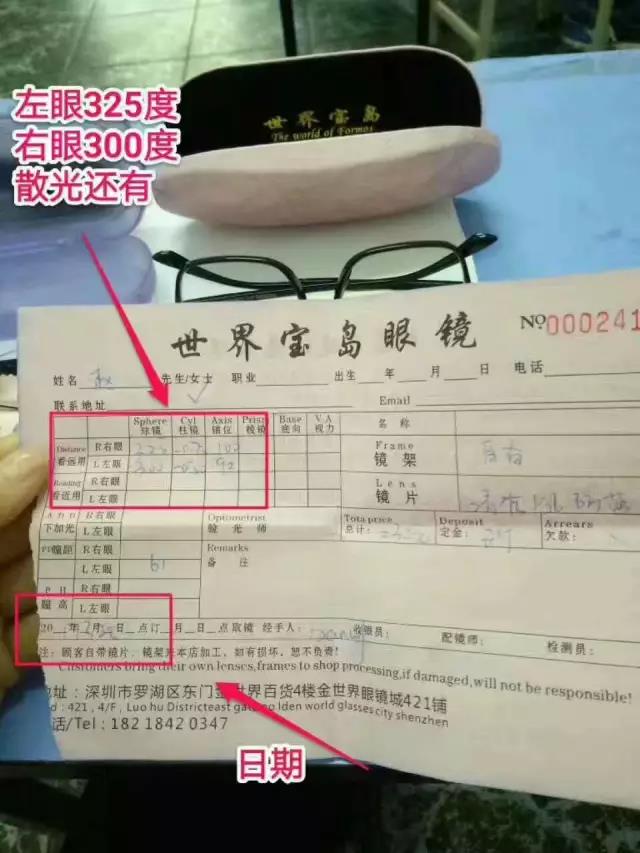 左眼325度
右眼300度
散光还有
世界宝岛
The world of Formos
世界宝岛眼镜
NO 000241
姓名 赵 先生/女士 职业 出生 年 月 日 电话
联系地址 Email
Sphere 球镜 Cyl 柱镜 Axis 轴位 Prism 棱镜 Base 底向 V.A 视力 名称
Distance 看远用 R右眼
L左眼
Reading 看近用 R右眼
L左眼
Frame 镜架 自有
Lens 镜片
A D D 下加光 R右眼
L左眼
Optometrist 验光师
Total price 总计: Deposit 定金: Arrears 欠款:
PD瞳距 R右眼
L左眼 61
Remarks 备注
P H 瞳高 R右眼
L左眼
20 年 月 日 点订 月 日 点取镜 经手人: 收银员: 配镜师: 检测员:
注: 顾客自带镜片、镜架来本店加工,如有损坏,恕不负责!
Customers bring their own lenses,frames to shop processing,if damaged,will not be responsible!
地址: 深圳市罗湖区东门金世界百货4楼金世界眼镜城421铺
d : 421 , 4/F , Luo hu Districteast gate golden world glasses city shenzhen
话/Tel : 182 1842 0347
日期